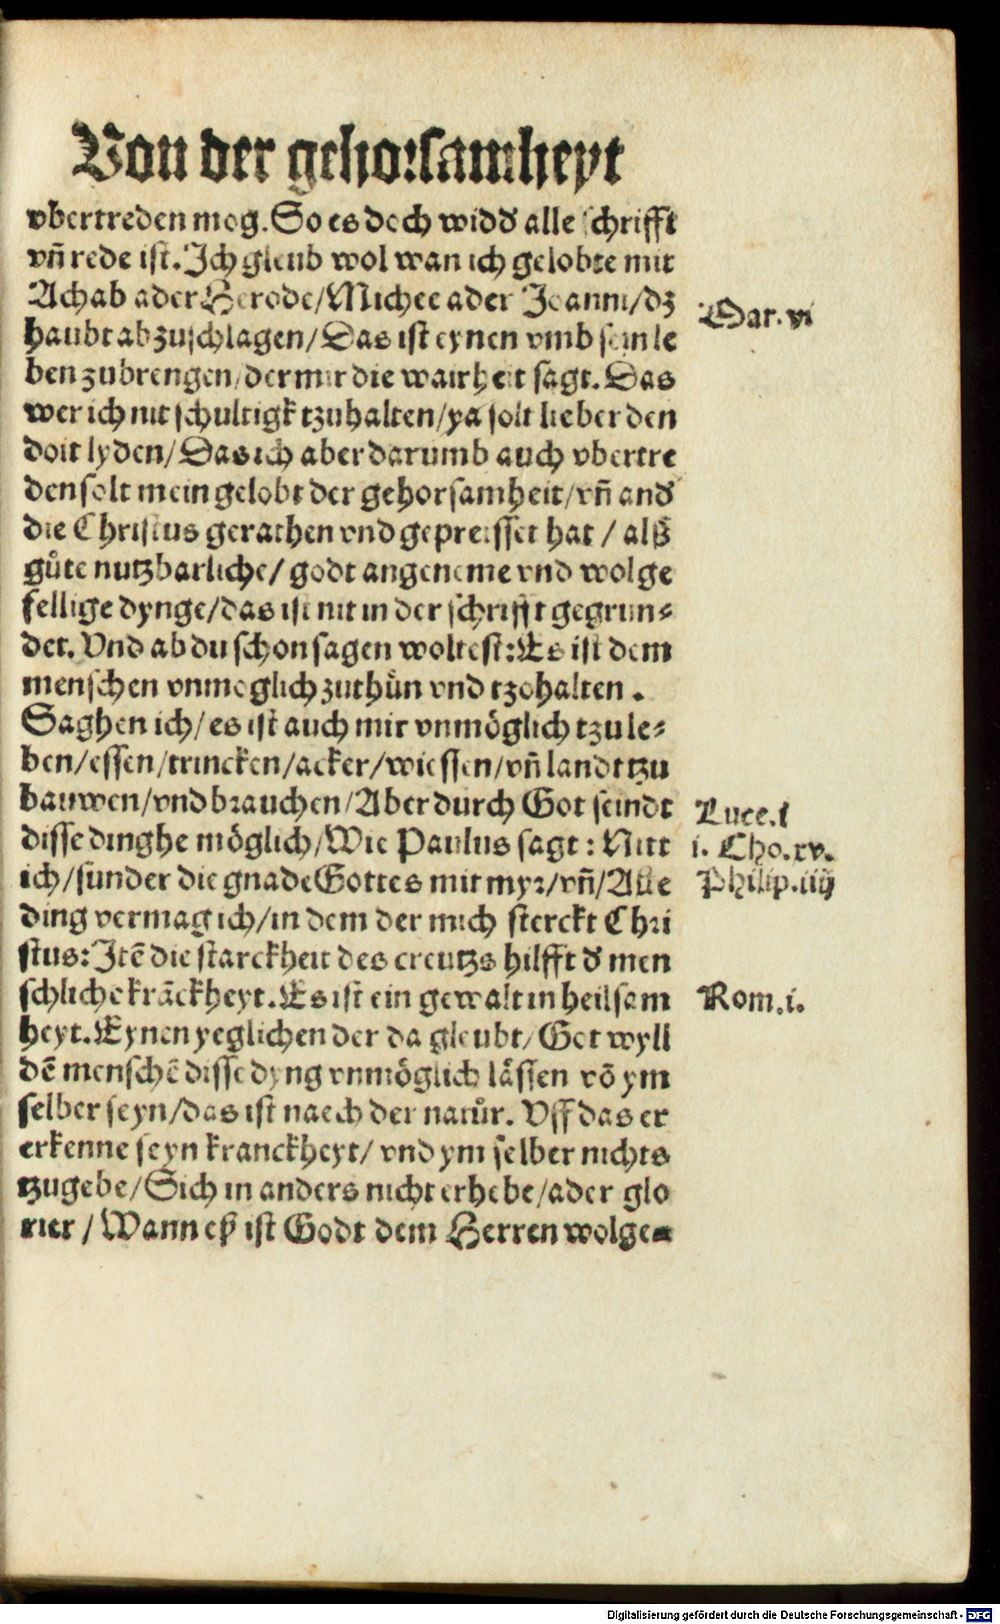 Von der gehorsamheyt
vbertreden mog. So es doch widđ alle schrifft
vñ rede ist. Ich gleub wol wan ich gelobte mit
Achab ader Herode/ Michee ader Joanni/ dz
Mar. vi
haubt abzuschlagen/ Das ist eynen vmb sein le
ben zubrengen/ der mir die wairheit sagt. Das
wer ich nit schultigk tzuhalten/ ya solt lieber den
doit lyden/ Das ich aber darumb auch vbertre
den solt mein gelobt der gehorsamheit/ vñ andđ
die Christus gerathen vnd gepreisset hat / alß
gůte nutzbarliche/ godt angeneme vnd wolge
fellige dynge/ das ist nit in der schrifft gegrun⸗
det. Vnd ab du schon sagen woltest: Es ist dem
menschen vnmoglich zuthůn vnd tzohalten .
Saghen ich/ es ist auch mir vnmöglich tzu le⸗
ben/ essen/ trincken/ acker/ wiessen/ vñ landt tzu
bauwen/ vnd brauchen/ Aber durch Got seindt
Luce. i
disse dinghe möglich/ Wie Paulus sagt: Nitt
i. Cho. xv.
ich/ sunder die gnade Gottes mit myr/ vñ/ Alle
Philip. iiij
ding vermag ich/ in dem der mich sterckt Chri
stus: Itē die starckheit des creutzs hilfft đ men
schliche krāckheyt. Es ist ein gewalt in heilsam
Rom. i.
heyt. Eynen yeglichen der da gleubt/ Got wyll
dē menschē disse dyng vnmöglich lässen vō ym
selber seyn/ das ist naech der natůr. Vff das er
erkenne seyn kranckheyt/ vnd ym selber nichts
tzugebe/ Sich in anders nicht erhebe/ ader glo
rier / Wann eß ist Godt dem Herren wolge⸗
Digitalisierung gefördert durch die Deutsche Forschungsgemeinschaft - DFG